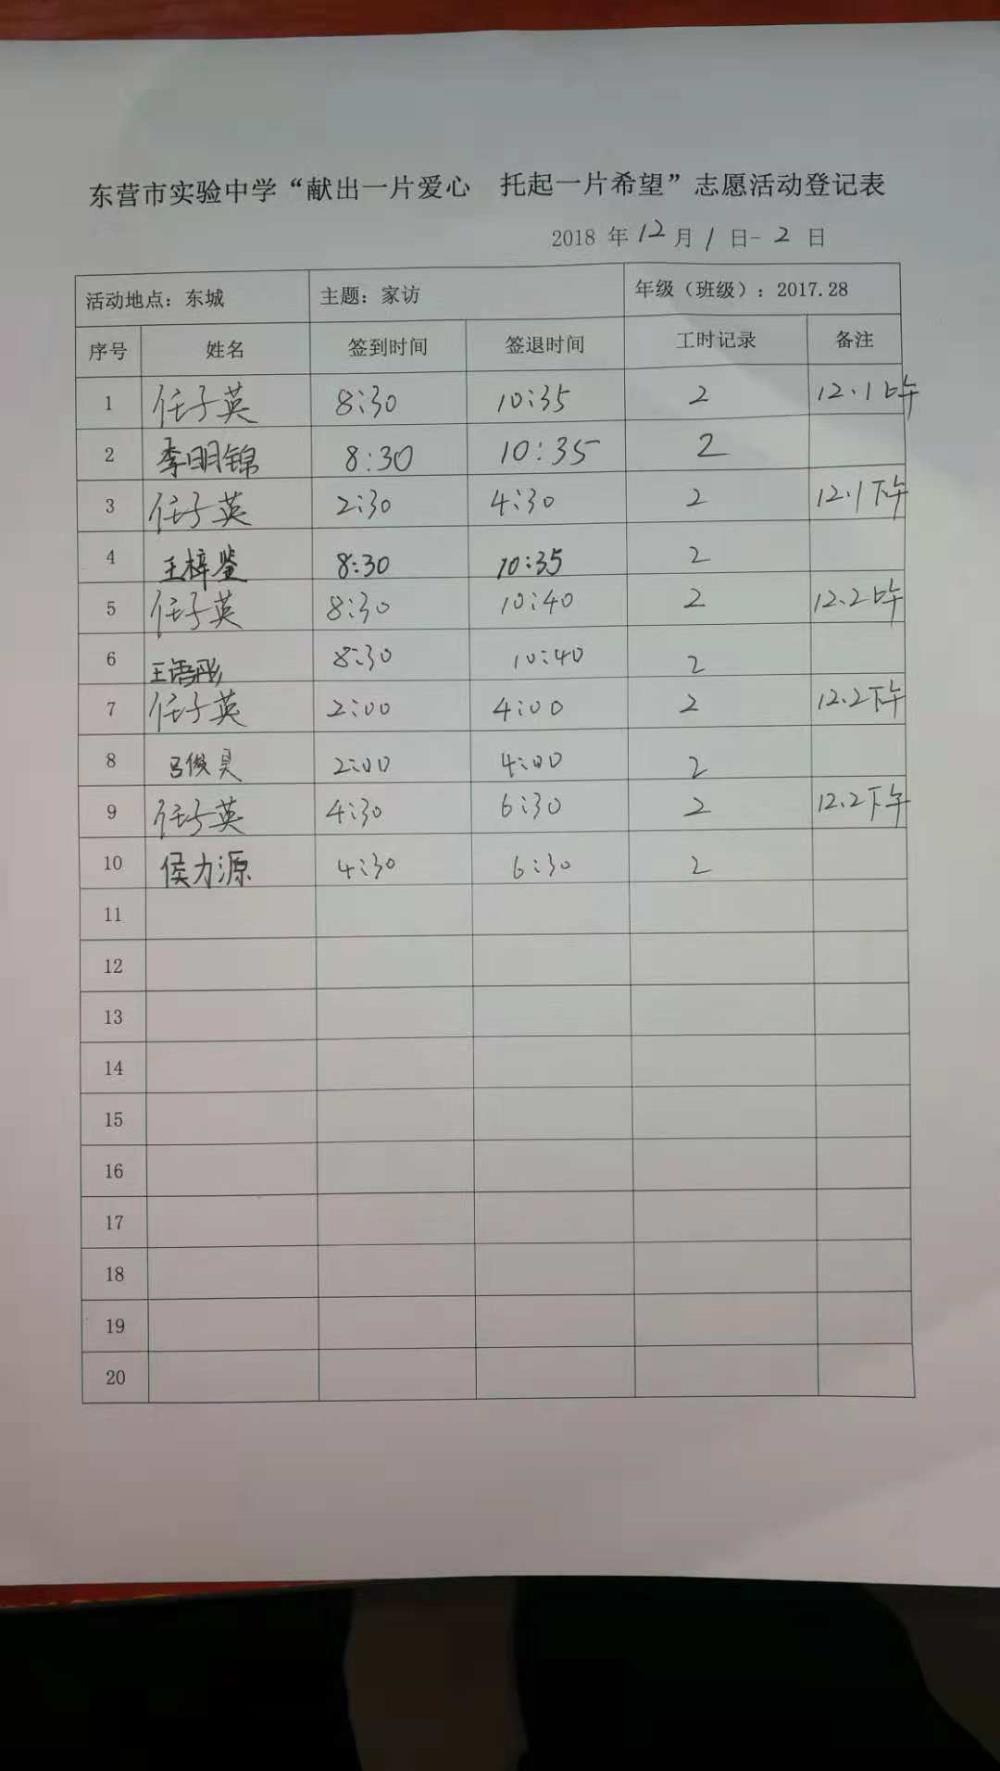 东营市实验中学“献出一片爱心 托起一片希望”志愿活动登记表
2018 年 12 月 1 日- 2 日
活动地点：东城 主题：家访 年级（班级）：2017.28
序号 姓名 签到时间 签退时间 工时记录 备注
1 任子英 8:30 10:35 2 12.1上午
2 李明锦 8:30 10:35 2
3 任子英 2:30 4:30 2 12.1下午
4 王梓鉴 8:30 10:35 2
5 任子英 8:30 10:40 2 12.2上午
6 王语彤 8:30 10:40 2
7 任子英 2:00 4:00 2 12.2下午
8 吕俊昊 2:00 4:00 2
9 任子英 4:30 6:30 2 12.2下午
10 侯力源 4:30 6:30 2
11
12
13
14
15
16
17
18
19
20